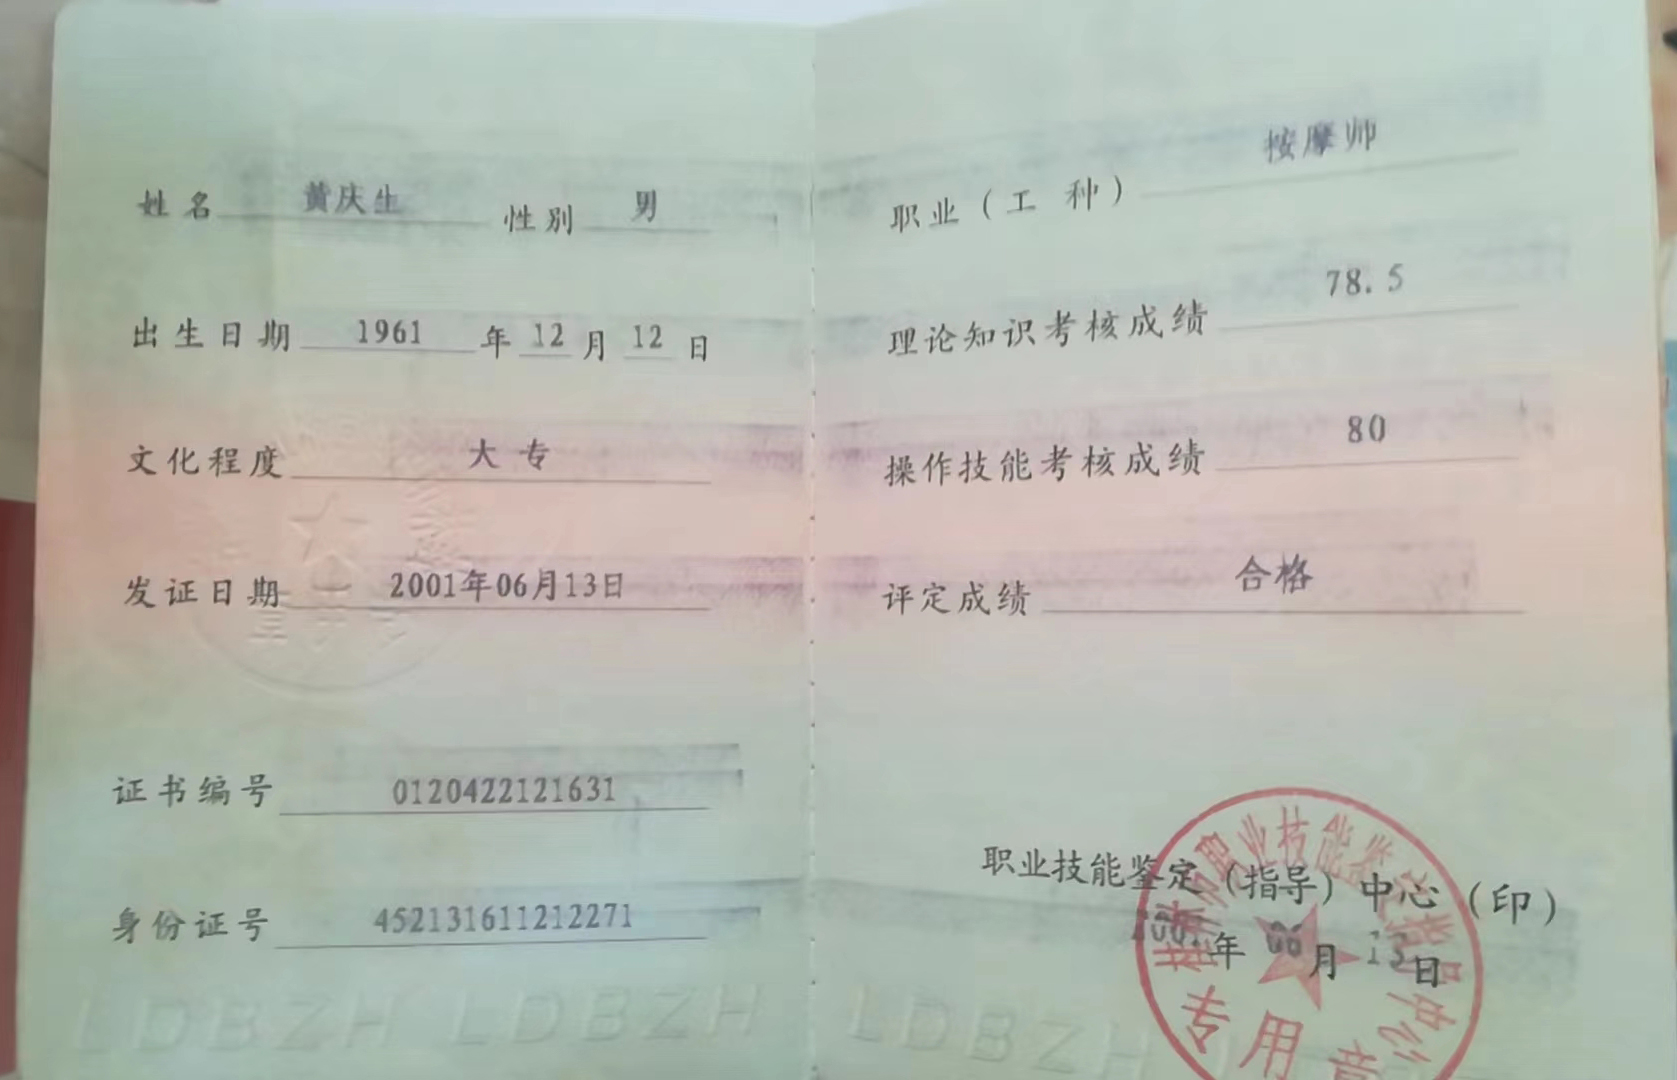 姓名 黄庆生 性别 男
出生日期 1961 年 12 月 12 日
文化程度 大专
发证日期 2001年06月13日
证书编号 0120422121631
身份证号 452131611212271
LDBZH LDBZH
职业（工 种） 按摩师
理论知识考核成绩 78.5
操作技能考核成绩 80
评定成绩 合格
职业技能鉴定（指导）中心（印）
2001年 06 月 13日
职业技能鉴定指导中心
专用章
LDBZH